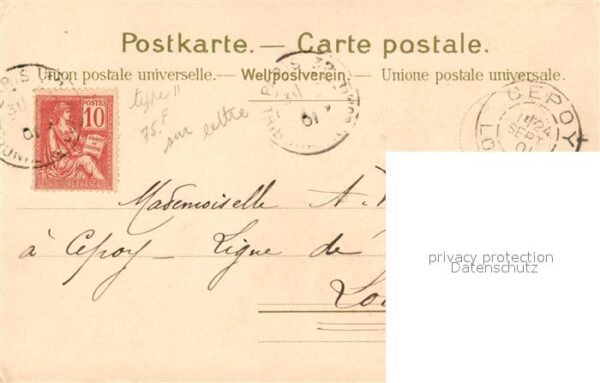 Postkarte. — Carte postale.
Union postale universelle. — Weltpostverein. — Unione postale universale.
10 POSTES
RÉPUBLIQUE FRANÇAISE
type II
75.F sur lettre
01
01
CEPOY
24
SEPT
01
LO
Mademoiselle A.
à Cepoy Ligne de
Loi
privacy protection
Datenschutz